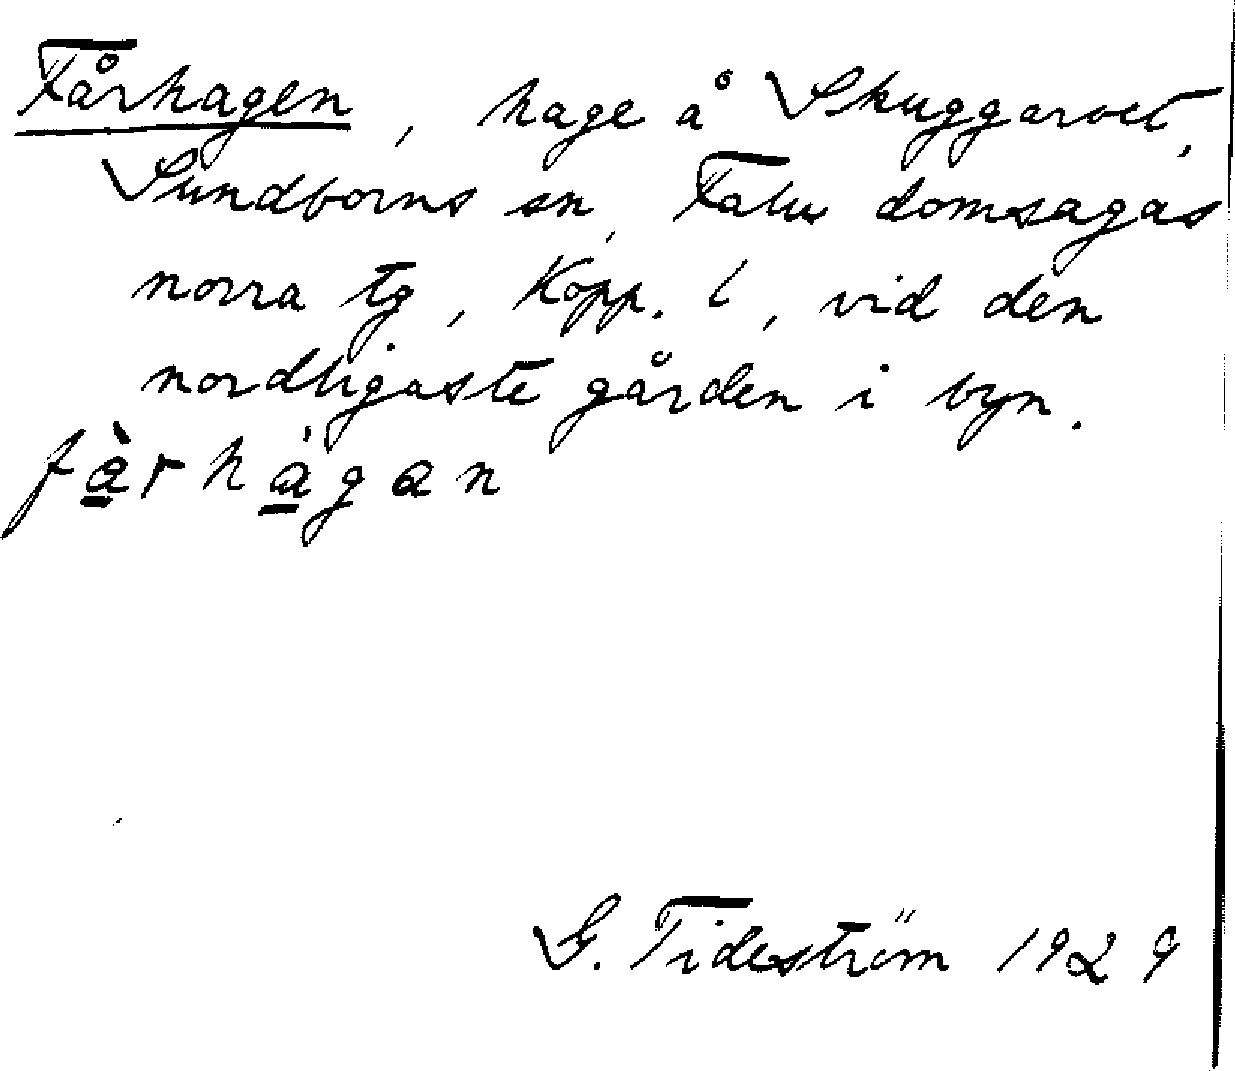 Fårhagen, hage å Skuggarvet,
Sundborns sn, Falu domsagas
norra tg, Kopp. l, vid den
nordligaste gården i byn.
fà̱rhá̱gan
G. Tideström 1929